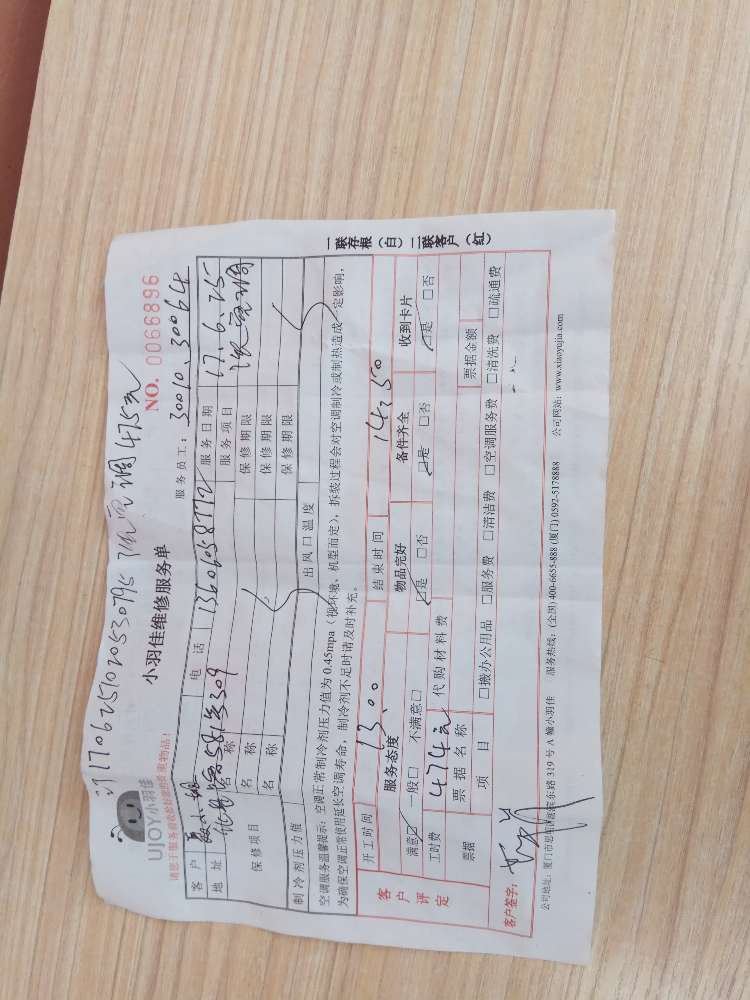 订1706251020530795 1次空调475元
UJOY小羽佳
小羽佳维修服务单
NO. 0066896
请您于服务前收拾好您的贵重物品!
服务员工: 30010、30064
客户 电话 服务日期 17.6.25
地址 581号309 服务项目 空调
保修项目
名称 保修期限
名称 保修期限
名称 保修期限
制冷剂压力值 出风口温度
空调服务温馨提示:空调正常制冷剂压力值为0.45mpa(视环境、机型而定),拆装过程会对空调制冷或制热造成一定影响,
为确保空调正常使用延长空调寿命,制冷剂不足时请及时补充。
客户评定
开工时间 13:00 结束时间 14:50
服务态度 物品完好 备件齐全 收到卡片
满意☑ 一般□ 不满意□ ☑是 □否 ☑是 □否 ☑是 □否
工时费 474元 代购材料费
票据 票据名称 票据金额
项目 □搬办公用品 □服务费 □清洁费 □空调服务费 □清洗费 □疏通费
客户签字:
公司地址:厦门市思明区湖滨东路319号A幢小羽佳 服务热线:(全国)400-6655-888 (厦门)0592-5178888 公司网站:www.xiaoyujia.com
一联存根(白)二联客户(红)